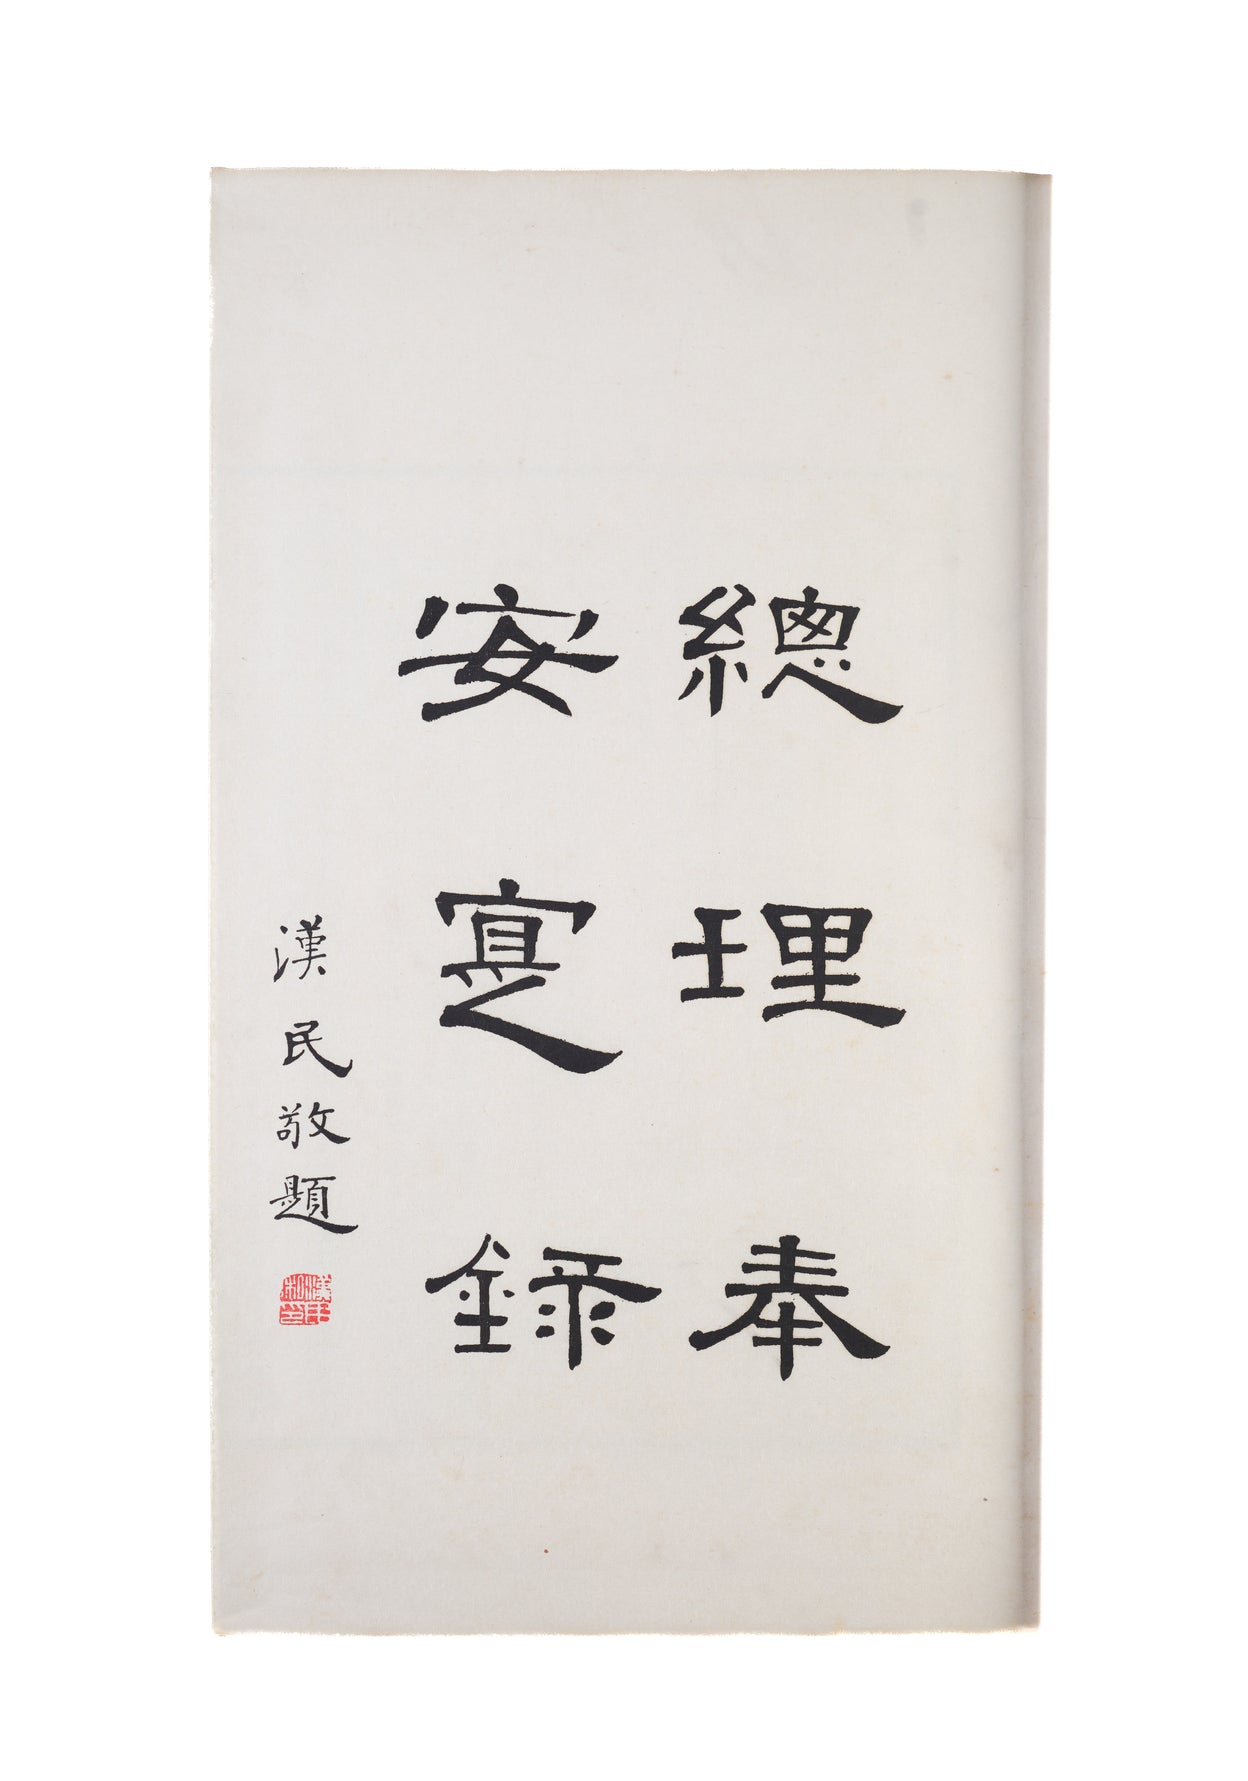 總理奉
安寔錄
漢民敬題